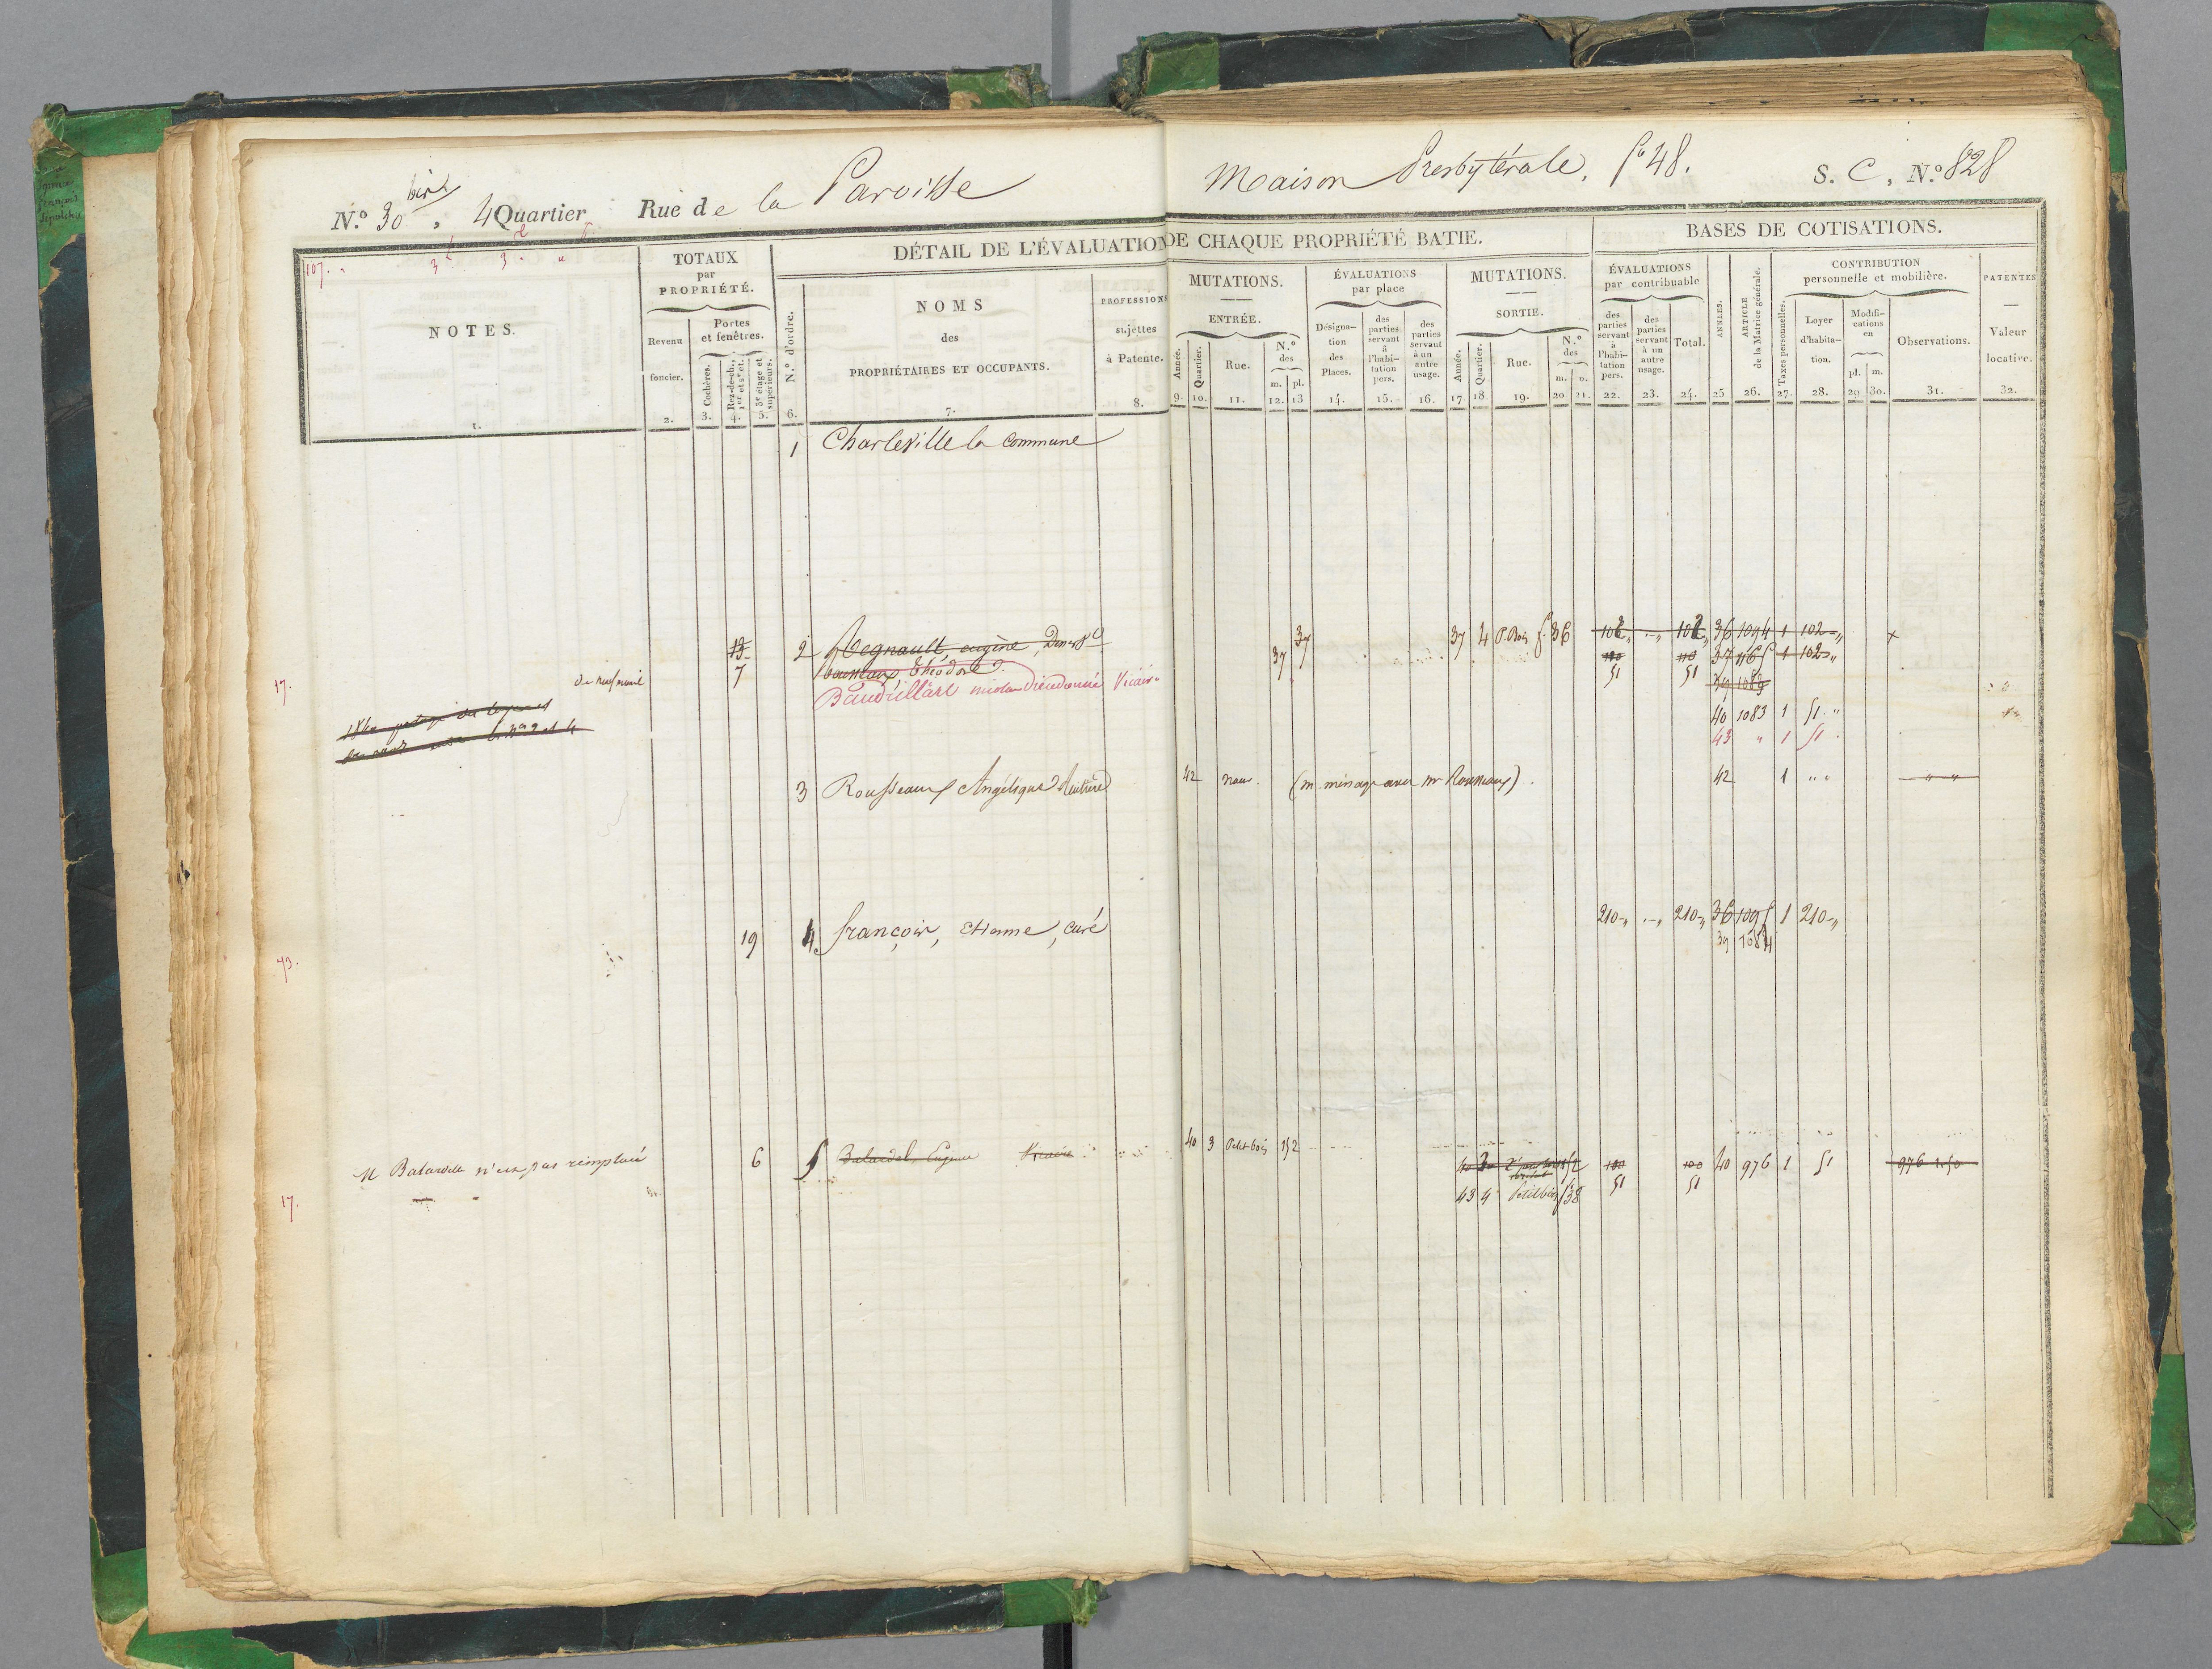 N.º 30 bis, 4 Quartier Rue de la Paroisse
Maison Presbytérale. fº 48. S. C, N.º 828
107.
DÉTAIL DE L'ÉVALUATION DE CHAQUE PROPRIÉTÉ BATIE.
BASES DE COTISATIONS.
NOTES.
1.
TOTAUX
par
PROPRIÉTÉ.
Revenu
foncier.
2.
Portes
et fenêtres.
Cochères.
3.
Rez-de-ch.,
1er et 2e ét.
4.
3e étage et
supérieurs.
5.
N.º d'ordre.
6.
NOMS
des
PROPRIÉTAIRES ET OCCUPANTS.
7.
PROFESSIONS
sujettes
à Patente.
8.
MUTATIONS.
ENTRÉE.
Année.
9.
Quartier.
10.
Rue.
11.
N.º
des
m. pl.
12. 13
ÉVALUATIONS
par place
Désigna-
tion
des
Places.
14.
des
parties
servant
à
l'habi-
tation
pers.
15.
des
parties
servant
à un
autre
usage.
16.
MUTATIONS.
SORTIE.
Année.
17
Quartier.
18.
Rue.
19.
N.º
des
m. o.
20 21.
ÉVALUATIONS
par contribuable
des
parties
servant
à
l'habi-
tation
pers.
22.
des
parties
servant
à un
autre
usage.
23.
Total.
24.
ANNÉES.
25
ARTICLE
de la Matrice générale.
26.
CONTRIBUTION
personnelle et mobilière.
Taxes personnelles.
27.
Loyer
d'habita-
tion.
28.
Modifi-
cations
en
pl. m.
29 30.
Observations.
31.
PATENTES
Valeur
locative.
32.
1 Charleville la commune
2 Regnault, eugène, 37 4 P. Bois f. 36 102 102 36 1094 1 102
7 Théodore 37 51 51 37 1 102
17. Baudrillart Dieudonné Vicaire 39 1083
40 1083 1 51
43 " 1 51
3 Rousseaux Angélique 42 nouv. (m. ménage avec mr Rousseaux). 42 1
19 4. françois, Etienne, curé 210 210 36 1095 1 210
39 1084
73.
M Balardelle n'est pas remplacé 6 5 Balardel, Eugène Vicaire 40 3 Petit-bois 152 100 100 40 976 1 51 976
43 4 Petit bois 138 51 51
17.